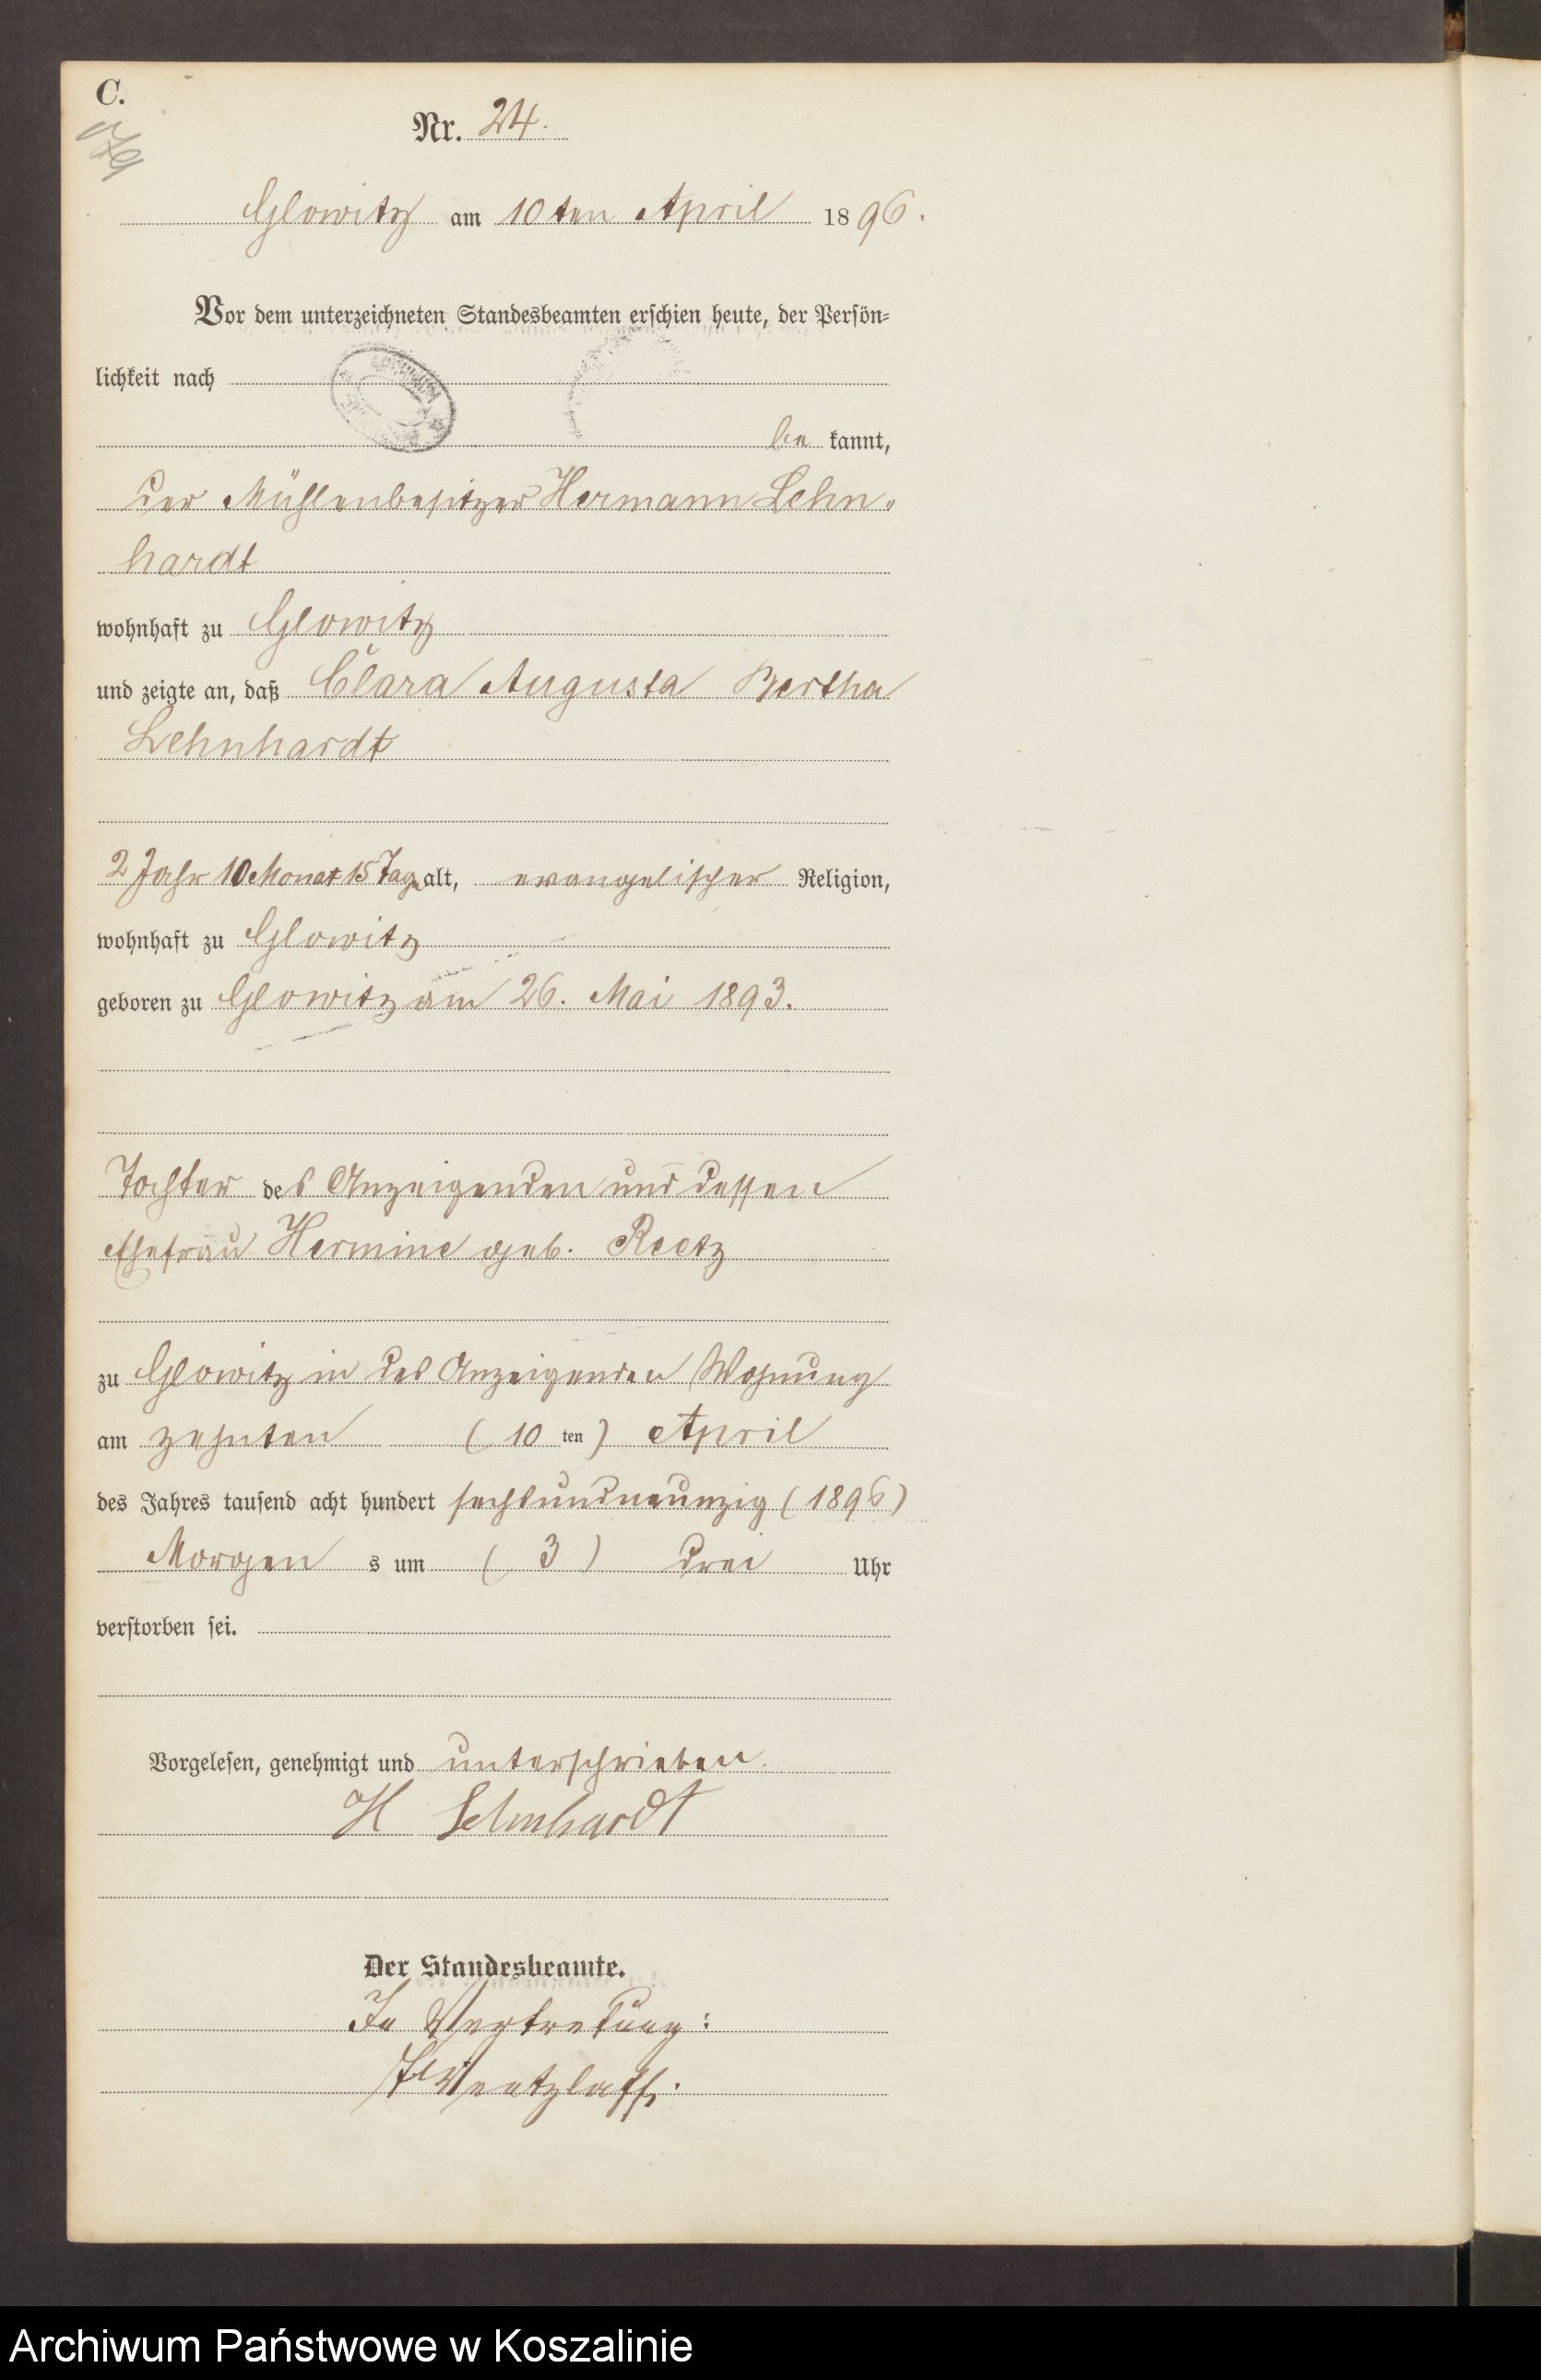 C.
Nr. 24.
Glowitz am 10ten April 1896.
Vor dem unterzeichneten Standesbeamten erschien heute, der Persön-
lichkeit nach
be kannt,
der Mühlenbesitzer Hermann Lehn-
hardt
wohnhaft zu Glowitz
und zeigte an, daß Clara Augusta Bertha
Lehnhardt
2 Jahr 10 Monat 15 Tage alt, evangelischer Religion,
wohnhaft zu Glowitz
geboren zu Glowitz am 26. Mai 1893.
Tochter des Anzeigenden und dessen
Ehefrau Hermine geb. Reetz
zu Glowitz in des Anzeigenden Wohnung
am zehnten (10 ten) April
des Jahres tausend acht hundert sechsundneunzig (1896)
Morgen s um (3) drei Uhr
verstorben sei.
Vorgelesen, genehmigt und unterschrieben.
H Lehnhardt
Der Standesbeamte.
In Vertretung:
Wentzlaff.
Archiwum Państwowe w Koszalinie